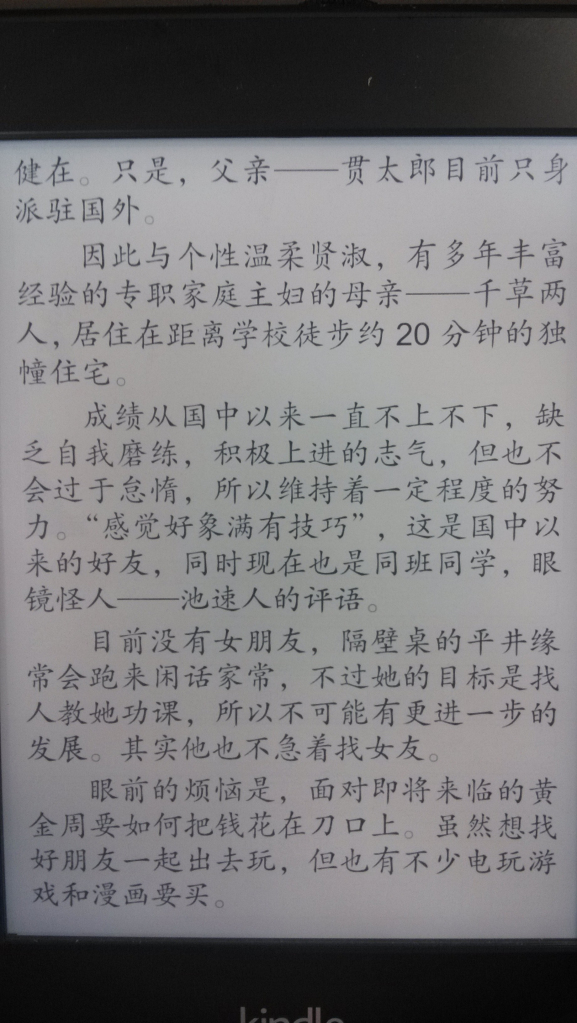 健在。只是，父亲——贯太郎目前只身
派驻国外。
因此与个性温柔贤淑，有多年丰富
经验的专职家庭主妇的母亲——千草两
人，居住在距离学校徒步约 20 分钟的独
幢住宅。
成绩从国中以来一直不上不下，缺
乏自我磨练，积极上进的志气，但也不
会过于怠惰，所以维持着一定程度的努
力。“感觉好象满有技巧”，这是国中以
来的好友，同时现在也是同班同学，眼
镜怪人——池速人的评语。
目前没有女朋友，隔壁桌的平井缘
常会跑来闲话家常，不过她的目标是找
人教她功课，所以不可能有更进一步的
发展。其实他也不急着找女友。
眼前的烦恼是，面对即将来临的黄
金周要如何把钱花在刀口上。虽然想找
好朋友一起出去玩，但也有不少电玩游
戏和漫画要买。
kindle